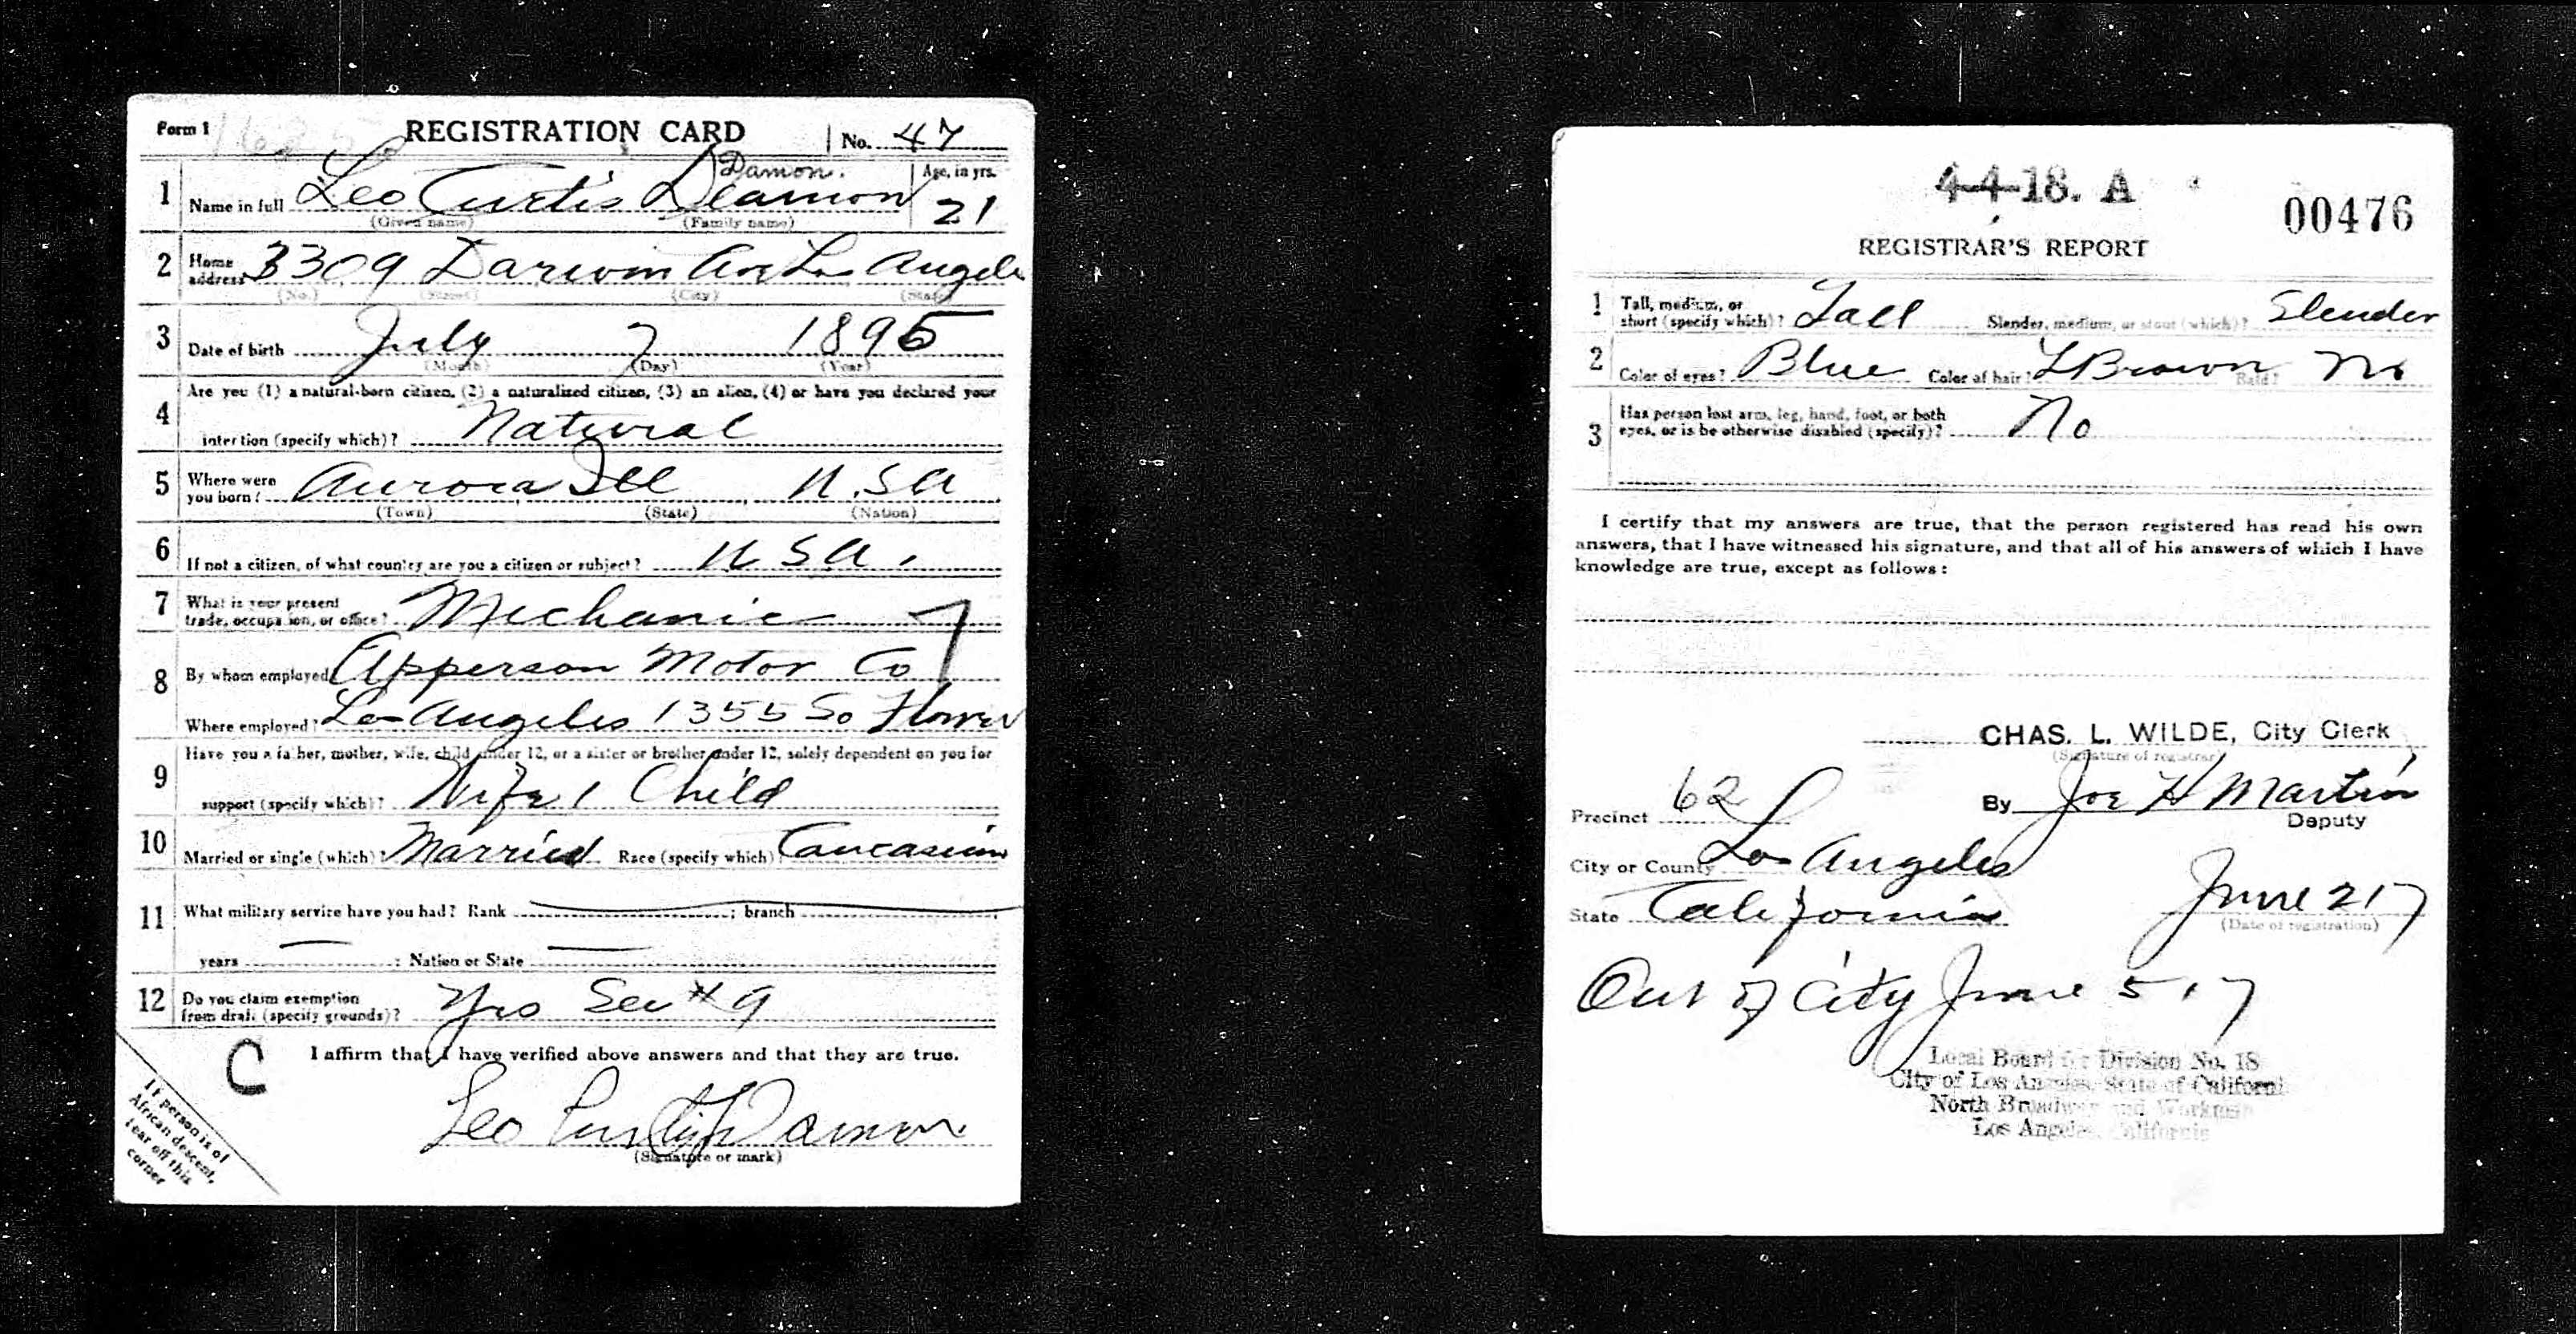 Form 1 REGISTRATION CARD No. 47
Damon.
1 Name in full Leo Curtis Deamon Age, in yrs. 21
(Given name) (Family name)
2 Home address 3309 Darwin Ave Los Angeles
(No.) (Street) (City) (State)
3 Date of birth July 7 1895
(Month) (Day) (Year)
4 Are you (1) a natural-born citizen, (2) a naturalized citizen, (3) an alien, (4) or have you declared your
intention (specify which)? Natural
5 Where were you born? Aurora Ill U.S.A
(Town) (State) (Nation)
6 If not a citizen, of what country are you a citizen or subject? U S A.
7 What is your present trade, occupation, or office? Mechanic
8 By whom employed? Apperson Motor Co
Where employed? Los Angeles 1355 So Flower
9 Have you a father, mother, wife, child under 12, or a sister or brother under 12, solely dependent on you for
support (specify which)? Wife 1 Child
10 Married or single (which)? Married Race (specify which)? Caucasian
11 What military service have you had? Rank ; branch
years ; Nation or State
12 Do you claim exemption from draft (specify grounds)? Yes See # 9
C I affirm that I have verified above answers and that they are true.
Leo Curtis Damon
(Signature or mark)
If person is of
African descent,
tear off this
corner
4-4-18. A
00476
REGISTRAR'S REPORT
1 Tall, medium, or short (specify which)? Tall Slender, medium, or stout (which)? Slender
2 Color of eyes? Blue Color of hair? L Brown Bald? No
3 Has person lost arm, leg, hand, foot, or both
eyes, or is he otherwise disabled (specify)? No
I certify that my answers are true, that the person registered has read his own
answers, that I have witnessed his signature, and that all of his answers of which I have
knowledge are true, except as follows:
CHAS. L. WILDE, City Clerk
(Signature of registrar)
Precinct 62 By Joe H Martin
Deputy
City or County Los Angeles
State California June 2 17
(Date of registration)
Out of City June 5 17
Local Board for Division No. 18
City of Los Angeles, State of California
North Broadway and Workman
Los Angeles, California